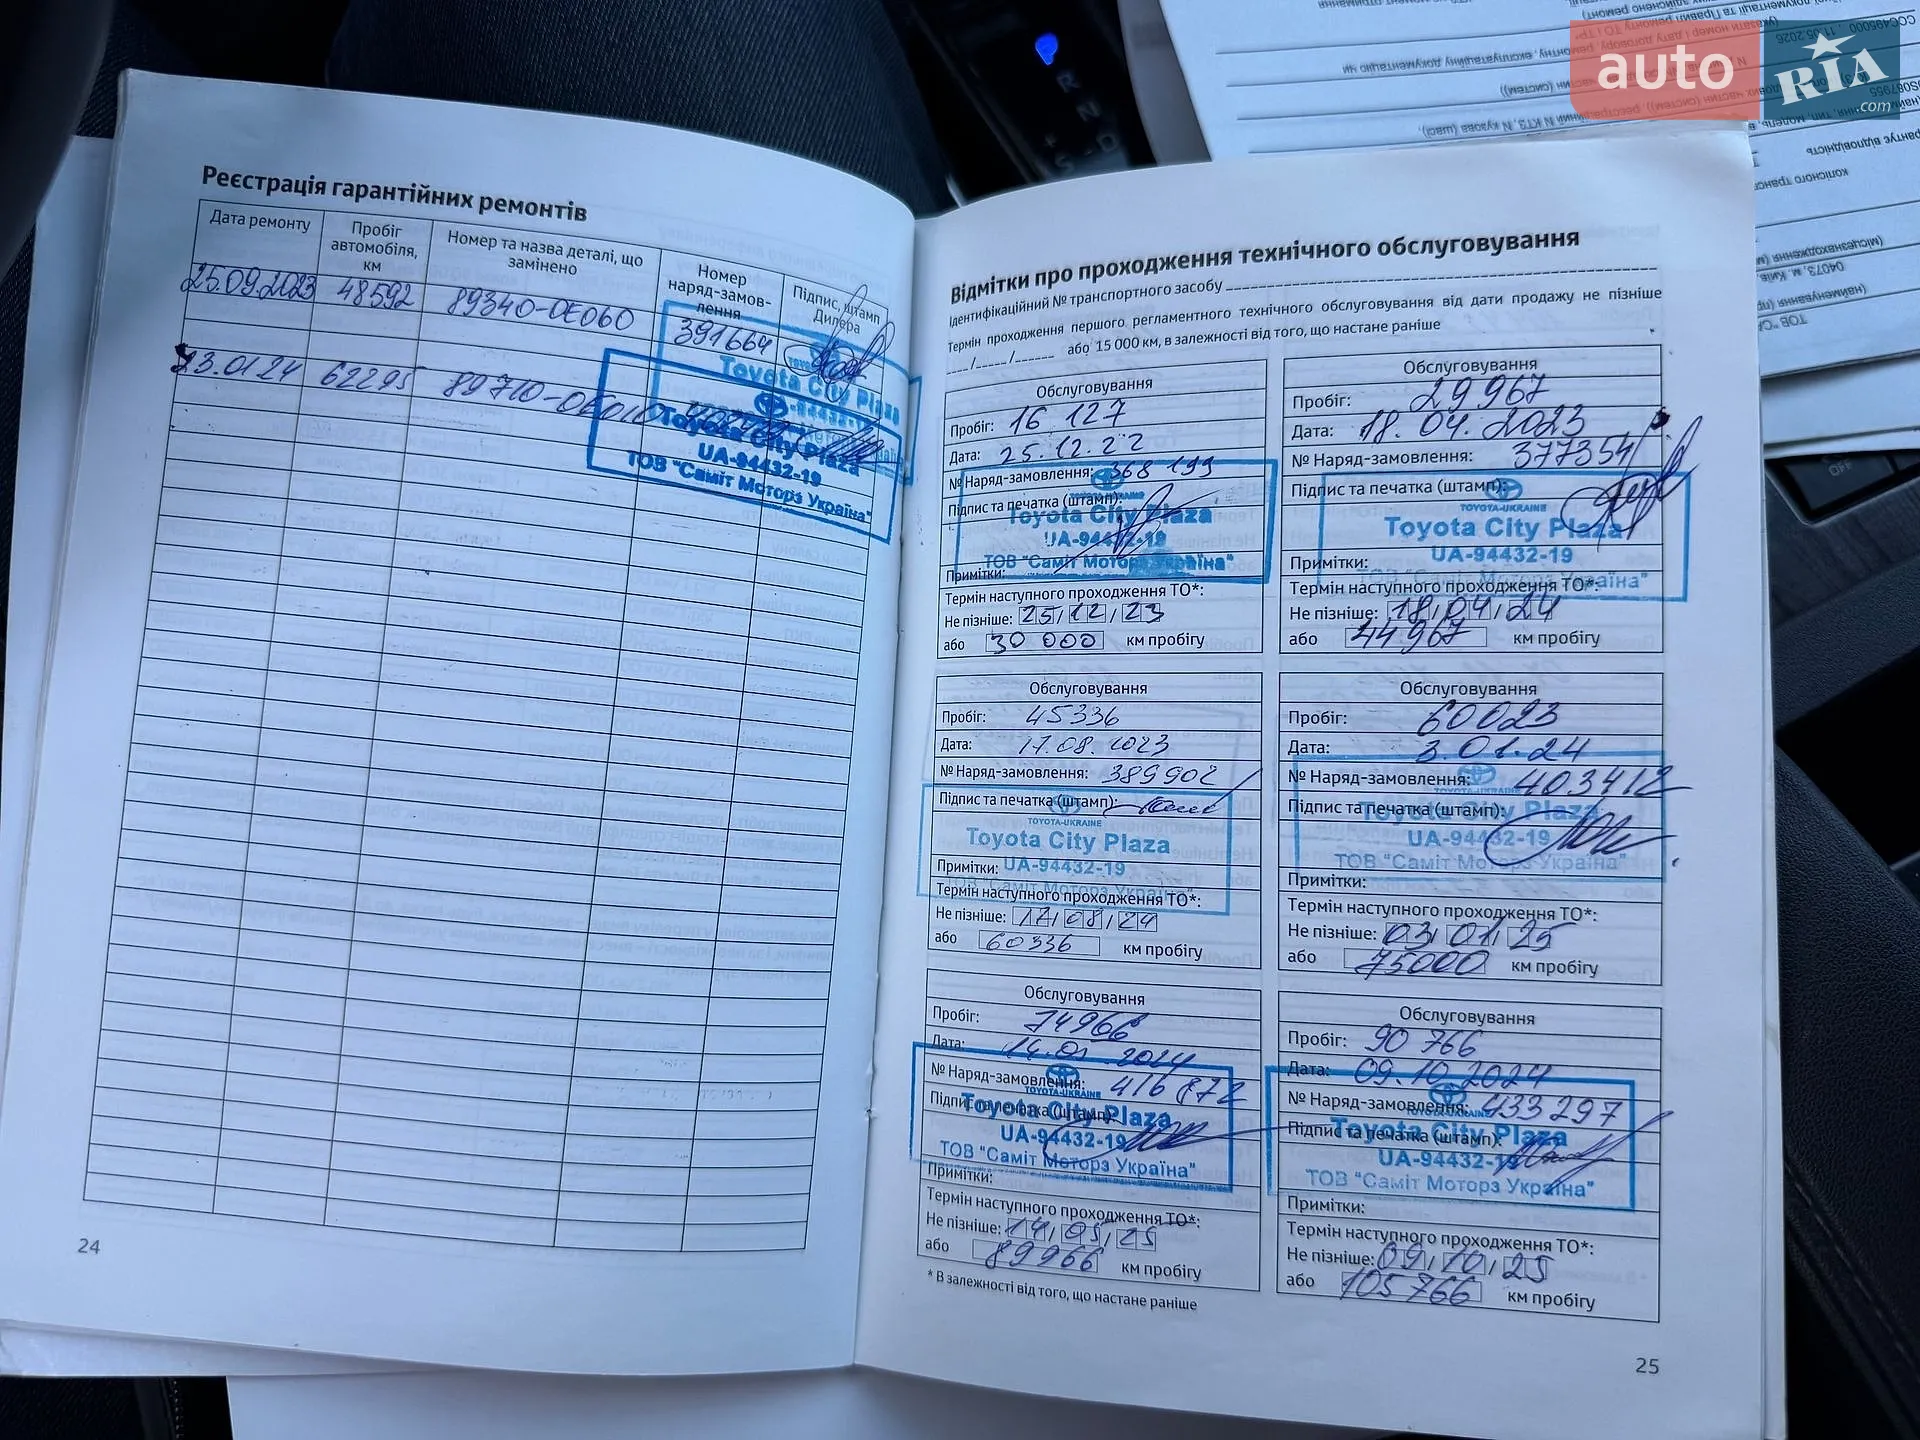 auto RIA .com
R
N
D
+
S
OFF
Реєстрація гарантійних ремонтів
Дата ремонту
Пробіг автомобіля, км
Номер та назва деталі, що замінено
Номер наряд-замов-лення
Підпис, штамп Дилера
25.09.2023 48592 89340-0E060 391664
23.01.24 62295
Toyota City Plaza
Toyota City Plaza
UA-94432-19
ТОВ "Саміт Моторз Україна"
24
Відмітки про проходження технічного обслуговування
Ідентифікаційний № транспортного засобу
Термін проходження першого регламентного технічного обслуговування від дати продажу не пізніше
__/__/__ або 15 000 км, в залежності від того, що настане раніше
Обслуговування
Пробіг: 16 127
Дата: 25.12.22
№ Наряд-замовлення: 368 199
Підпис та печатка (штамп):
Toyota City Plaza
UA-94432-19
ТОВ "Саміт Моторз Україна"
Примітки:
Термін наступного проходження ТО*:
Не пізніше: 25/12/23
або 30 000 км пробігу
Обслуговування
Пробіг: 29967
Дата: 18.04.2023
№ Наряд-замовлення: 377354
Підпис та печатка (штамп):
TOYOTA-UKRAINE
Toyota City Plaza
UA-94432-19
Примітки:
ТОВ "Саміт Моторз Україна"
Термін наступного проходження ТО*:
Не пізніше: 18/04/24
або 44967 км пробігу
Обслуговування
Пробіг: 45336
Дата: 17.08.2023
№ Наряд-замовлення: 389902
Підпис та печатка (штамп):
TOYOTA-UKRAINE
Toyota City Plaza
Примітки: UA-94432-19
ТОВ "Саміт Моторз Україна"
Термін наступного проходження ТО*:
Не пізніше: 17/08/24
або 60336 км пробігу
Обслуговування
Пробіг: 60023
Дата: 3.01.24
№ Наряд-замовлення: 403412
Підпис та печатка (штамп):
Toyota City Plaza
UA-94432-19
ТОВ "Саміт Моторз Україна"
Примітки:
Термін наступного проходження ТО*:
Не пізніше: 03/01/25
або 75000 км пробігу
Обслуговування
Пробіг: 74966
Дата: 14.05.2024
№ Наряд-замовлення: 416 872
TOYOTA-UKRAINE
Підпис та печатка (штамп):
Toyota City Plaza
UA-94432-19
ТОВ "Саміт Моторз Україна"
Примітки:
Термін наступного проходження ТО*:
Не пізніше: 14/05/25
або 89966 км пробігу
* В залежності від того, що настане раніше
Обслуговування
Пробіг: 90 766
Дата: 09.10.2024
№ Наряд-замовлення: 433 297
Підпис та печатка (штамп):
Toyota City Plaza
UA-94432-19
ТОВ "Саміт Моторз Україна"
Примітки:
Термін наступного проходження ТО*:
Не пізніше: 09/10/25
або 105766 км пробігу
25